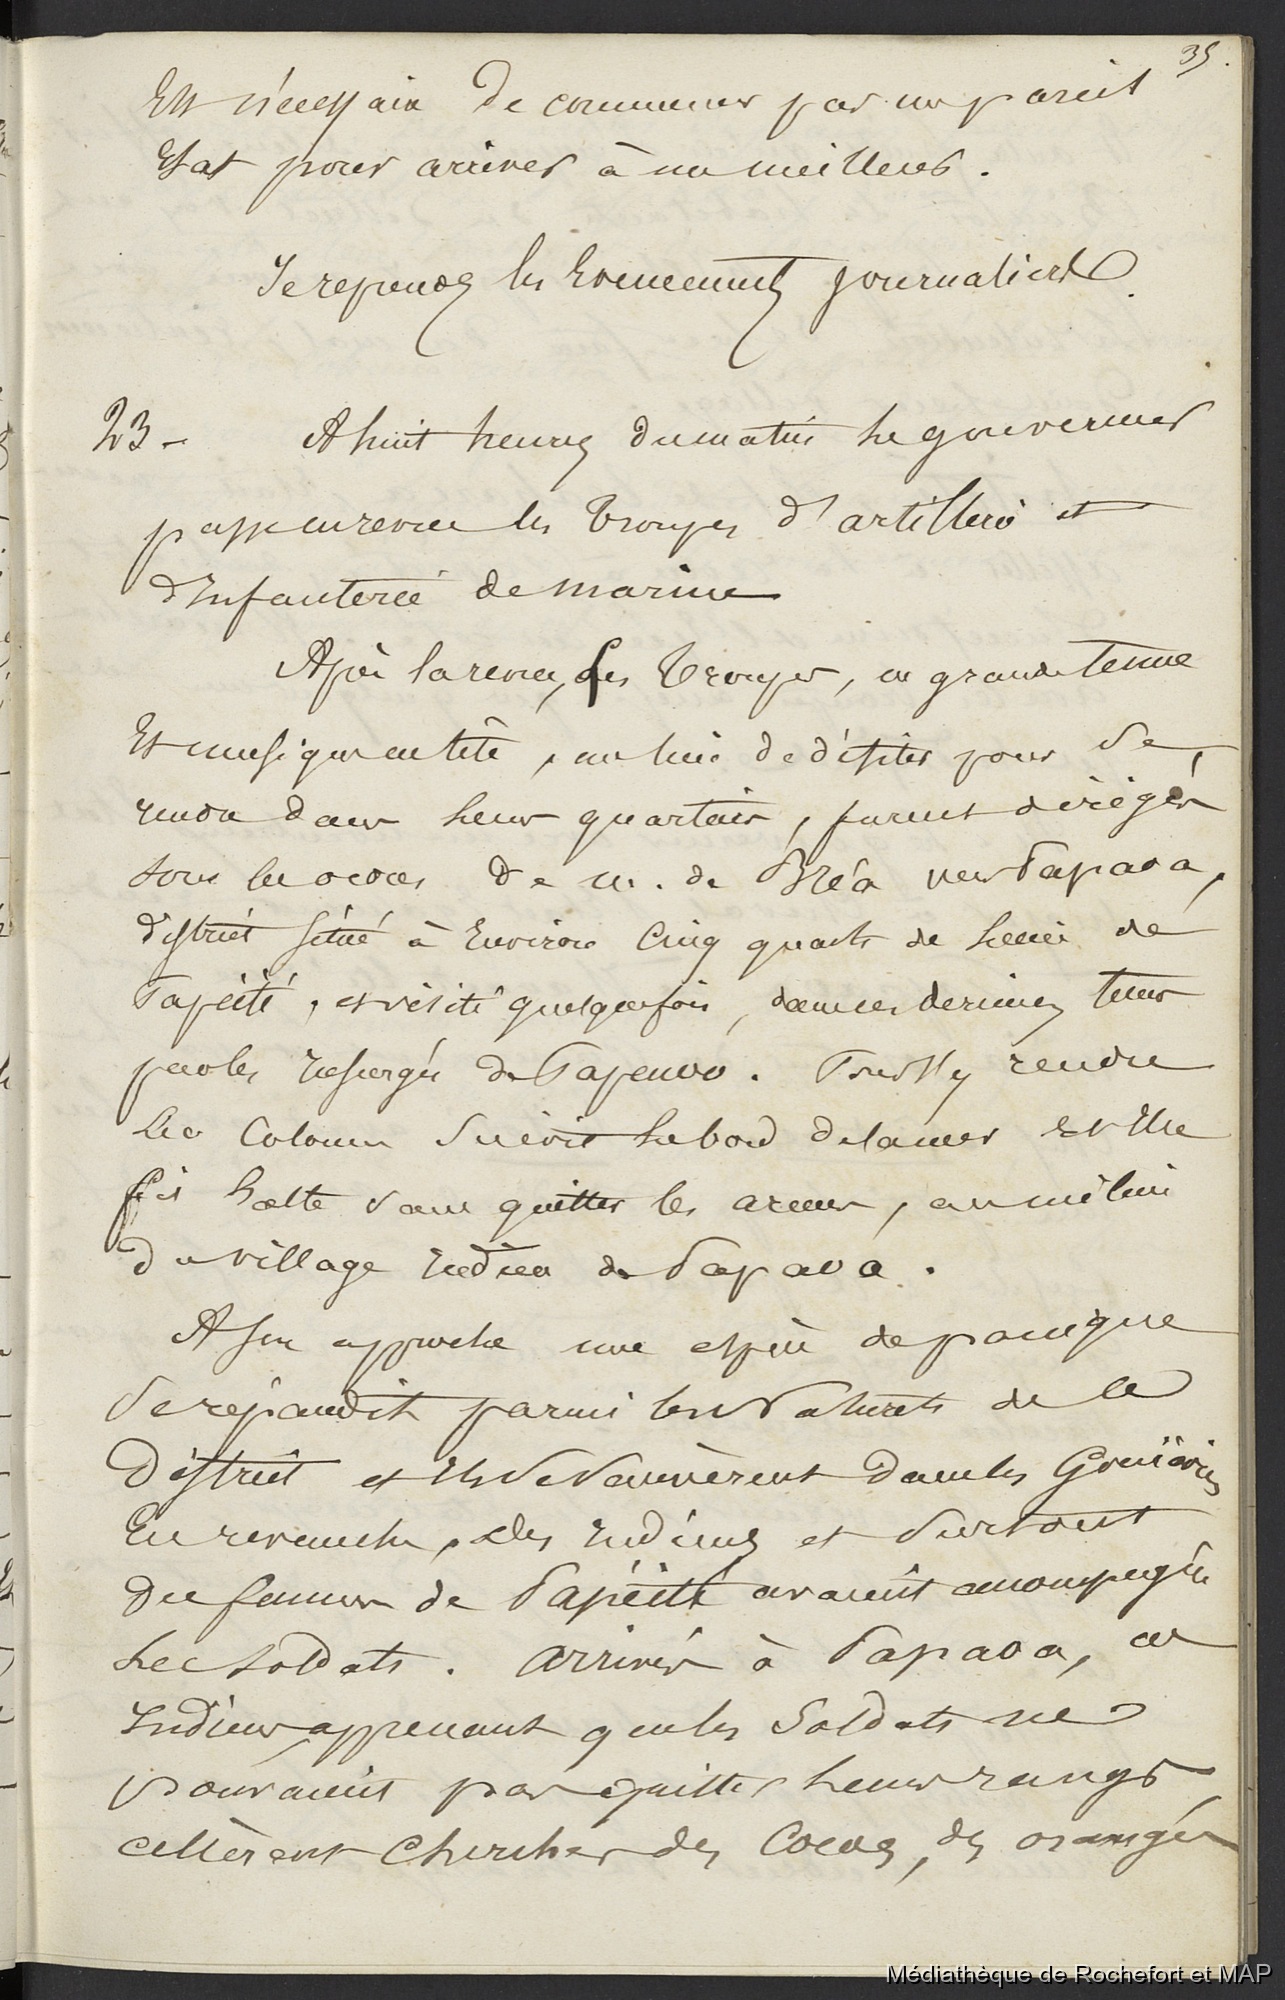 35.
Est nécessaire de commencer par un pareil
Etat pour arriver à un meilleur.
Je reprends les Evenements journaliers.
23 - A huit heures du matin le gouverneur
passe en revue les Troupes d'artillerie et
d'Infanterie de marine
Après la revue, les Troupes, en grande tenue
Et musique en tête, au lieu de défiler pour se
rendre dans leur quartier, furent dirigées
sous les ordres de m. de Bréa vers Papaoa,
district situé à Environ Cinq quarts de lieue de
Papéité, et visité quelquefois, dans ces derniers tems
par les insurgés de Papenoo. Pour s'y rendre
la Colonne suivit le bord de la mer et Elle
fit halte sans quitter les armes, au milieu
du village indien de Papaoa.
A son approche une espèce de panique
se répandit parmi les Naturels de ce
District et Ils se sauvèrent dans les Goüaviers
En revanche, des Indiens et surtout
des femmes de Papéité avaient accompagné
les soldats. Arrivés à Papaoa, ces
Indiens apprenant que les soldats ne
pouvaient pas quitter leurs rangs,
allèrent chercher des Cocos, des oranges
Médiathèque de Rochefort et MAP